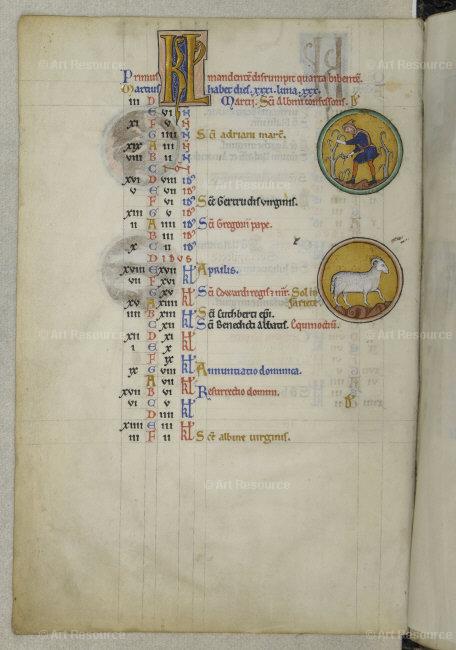 KL
Primus mandentem disrumpit quarta bibentem.
Marcius habet dies. xxxi. luna. xxx.
III D Marcij. Sci Albini confessoris.
E VI N
XI F V N Sci adriani mart.
G IIII N
XIX A III N
VIII B II N
C
XVI D VIII id
V E VII id
F VI id Sce Gertrudis virginis.
XIII G V id
II A IIII id Sci Gregorii pape.
B III id
X C II id
D IDUS
XVIII E XVII kl Aprilis.
VII F XVI kl
G XV kl Sci Edwardi regis et mr. Sol in
XV A kl ariete.
IIII B XIII kl Sci Cuthberti epi.
C XII kl Sci Benedicti abbatis. Equinoctium.
XII D XI kl
I E X kl
F IX kl
IX G VIII kl Annuntiatio dominica.
A VII kl
XVII B VI kl Resurrectio domini.
VI C V kl
D IIII kl
XIIII E III kl
III F II kl Sce albine virginis.
© Art Resource
© Art Resource
© Art Resource
© Art Resource
© Art Resource
© Art Resource
© Art Resource